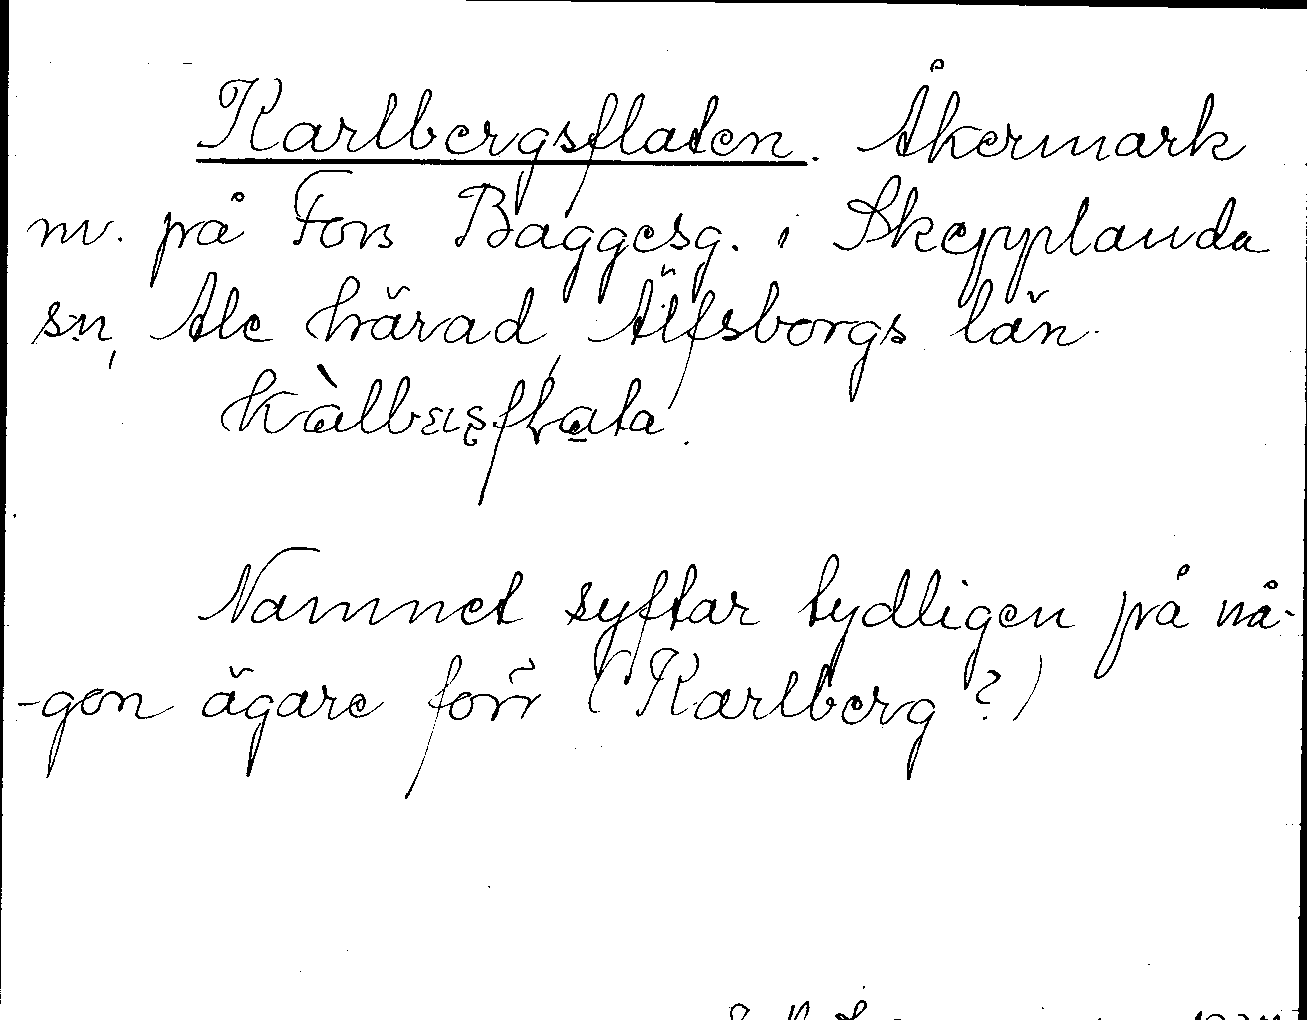 Karlbergsflaten. Åkermark
nv. på Fors Baggesg. i Skepplanda
sn, Ale härad, Älfsborgs län.
Namnet syftar tydligen på nå-
-gon ägare förr (Karlberg?)